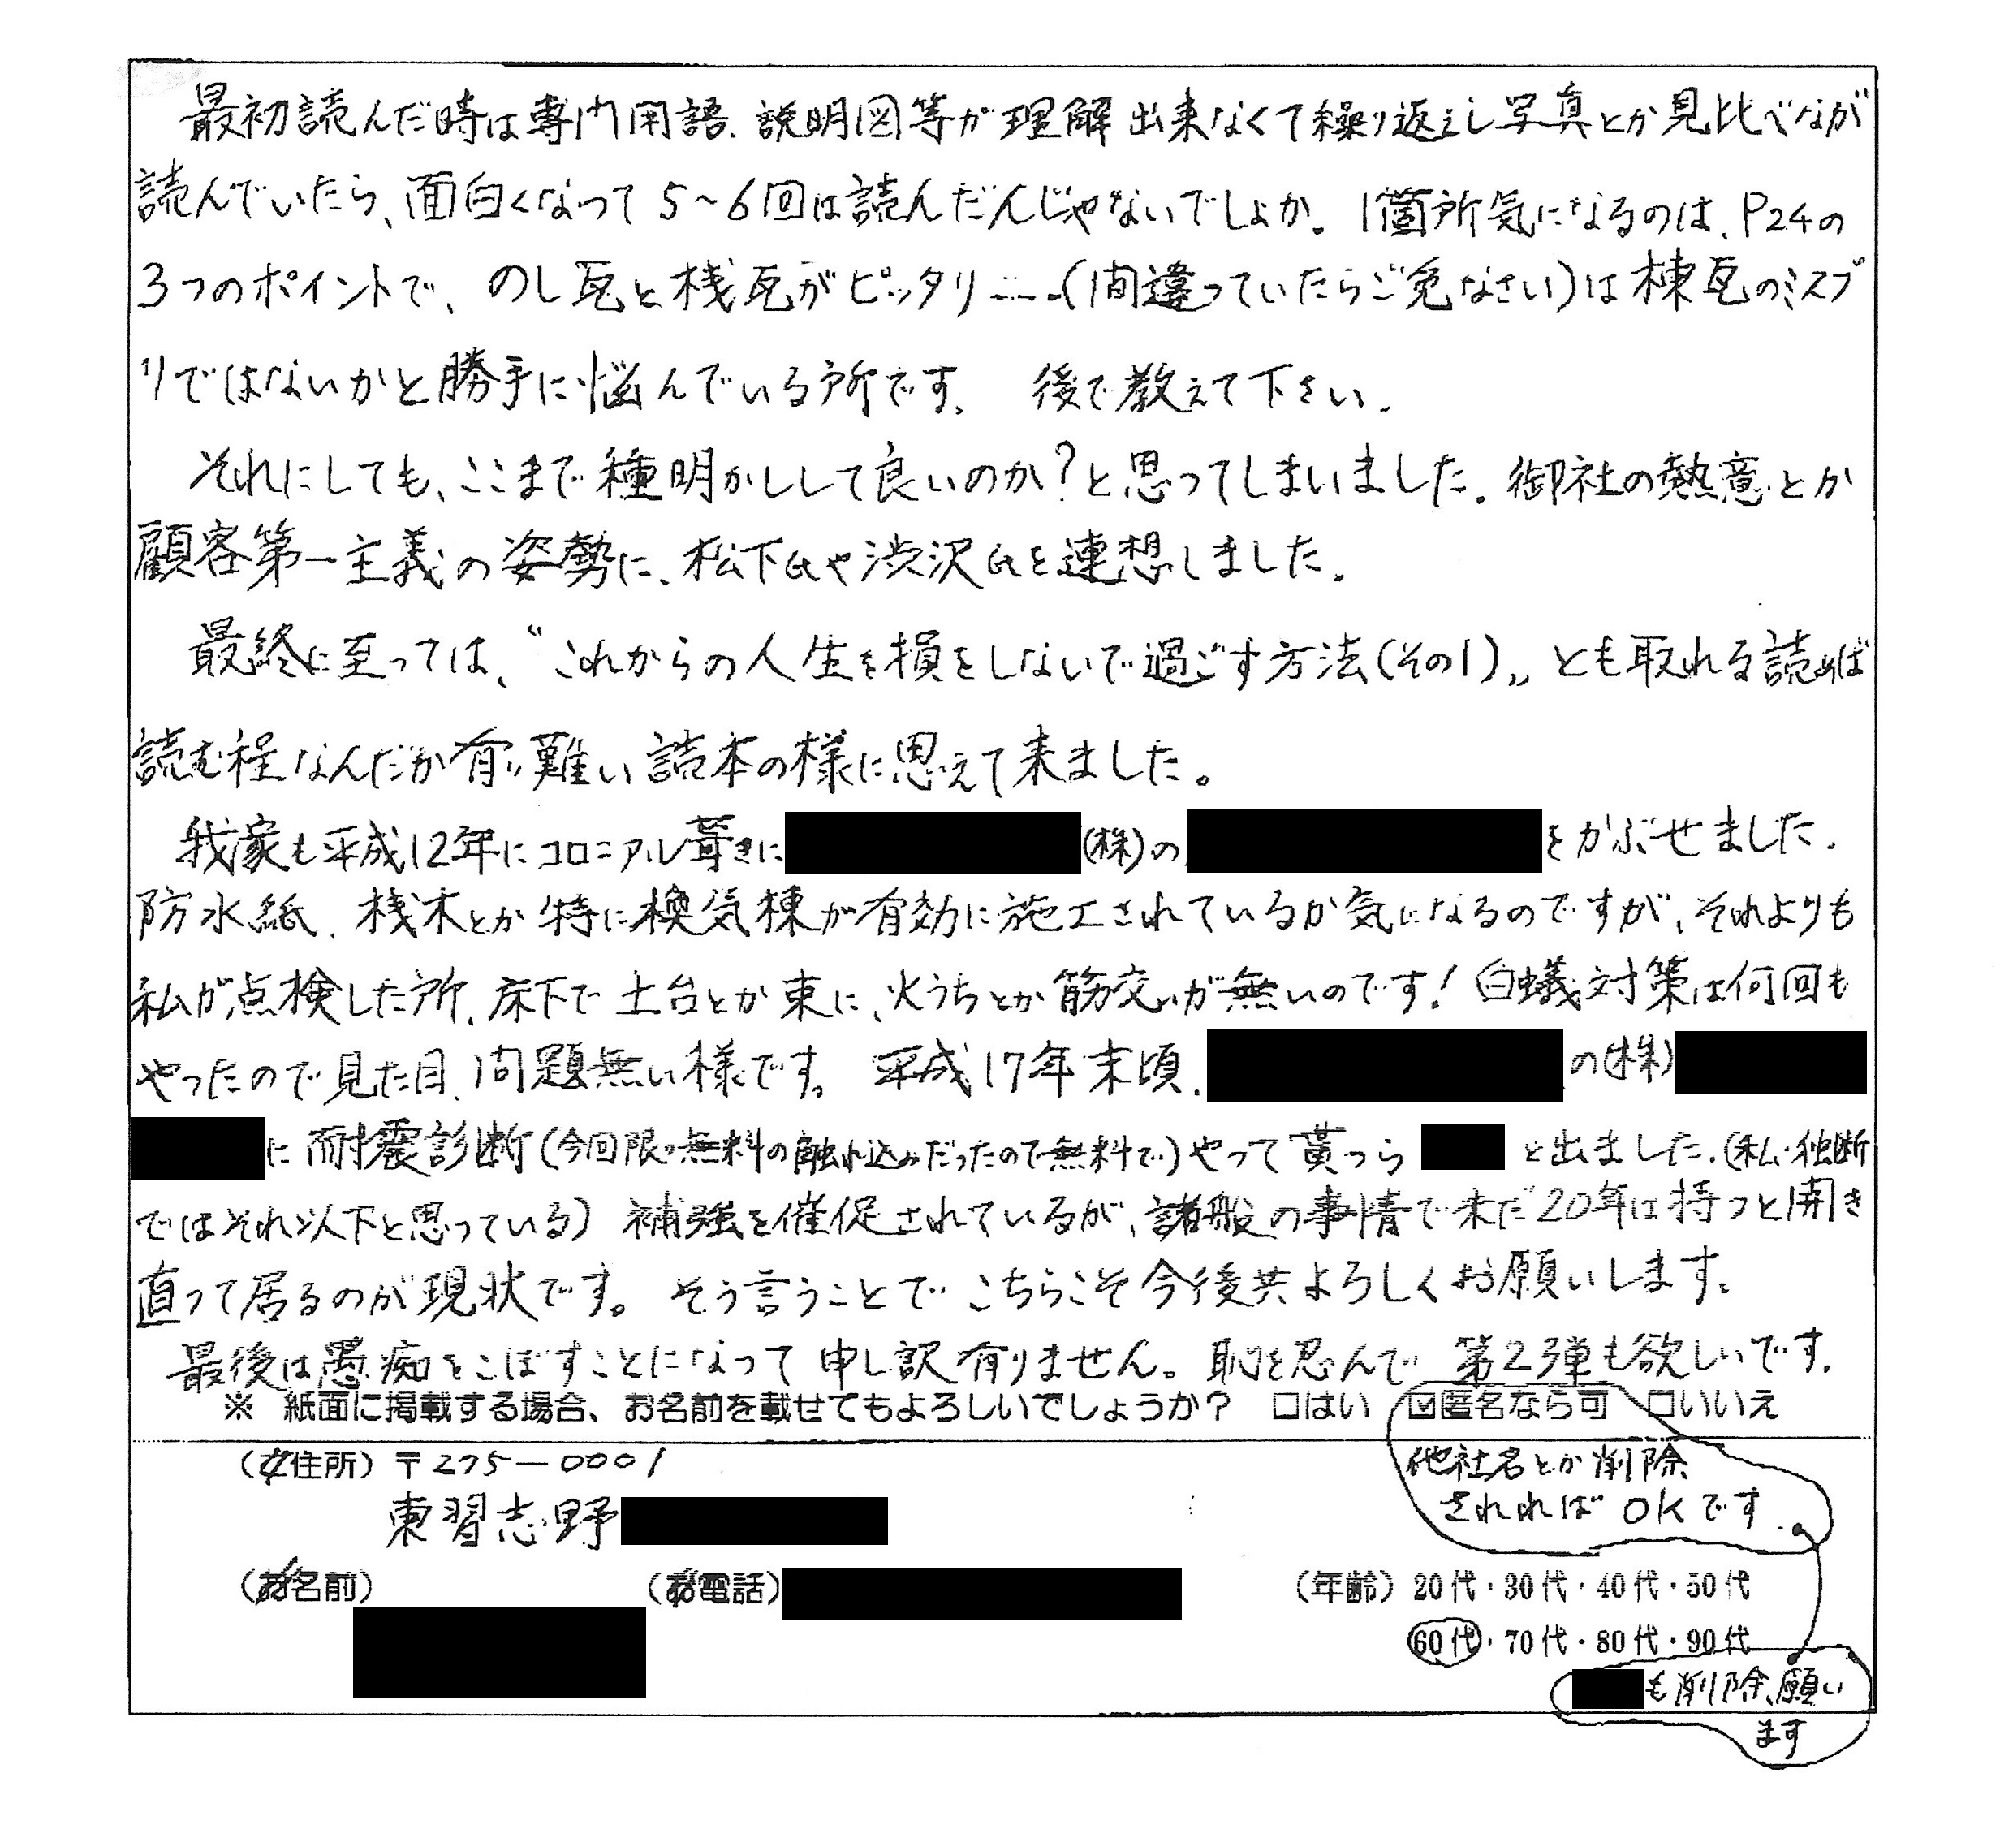 最初読んだ時は専門用語、説明図等が理解出来なくて繰り返えし写真とか見比べなが
読んでいたら、面白くなって5~6回は読んだんじゃないでしょか。1箇所気になるのは、P24の
3つのポイントで、のし瓦と桟瓦がピッタリ……(間違っていたらご免なさい)は棟瓦のミスプ
リではないかと勝手に悩んでいる所です。 後で教えて下さい。
それにしても、ここまで種明かしして良いのか?と思ってしまいました。御社の熱意とか
顧客第一主義の姿勢に、松下氏や渋沢氏を連想しました。
最終に至っては、〝これからの人生を損をしないで過ごす方法(その1)〟とも取れる読めば
読む程なんだか有り難い読本の様に思えて来ました。
我家も平成12年にコロニアル葺きに (株)の をかぶせました。
防水紙、桟木とか特に換気棟が有効に施工されているか気になるのですが、それよりも
私が点検した所、床下で土台とか束に、火うちとか筋交いが無いのです!白蟻対策は何回も
やったので見た目、問題無い様です。 平成17年末頃、 の(株)
に耐震診断(今回限り無料の触れ込みだったので無料で)やって貰つら と出ました。(私・独断
ではそれ以下と思っている) 補強を催促されているが、諸般の事情で未だ20年は持つと開き
直って居るのが現状です。そう言うことでこちらこそ今後共よろしくお願いします。
最後は愚痴をこぼすことになって申し訳有りません。恥を忍んで第2弾も欲しいです。
※ 紙面に掲載する場合、お名前を載せてもよろしいでしょうか? □はい ☑匿名なら可 □いいえ
(ご住所)〒275-0001
他社名とか削除
されればOKです。
東習志野
(お名前) (お電話) (年齢)20代・30代・40代・50代
60代・70代・80代・90代
も削除、願い
ます